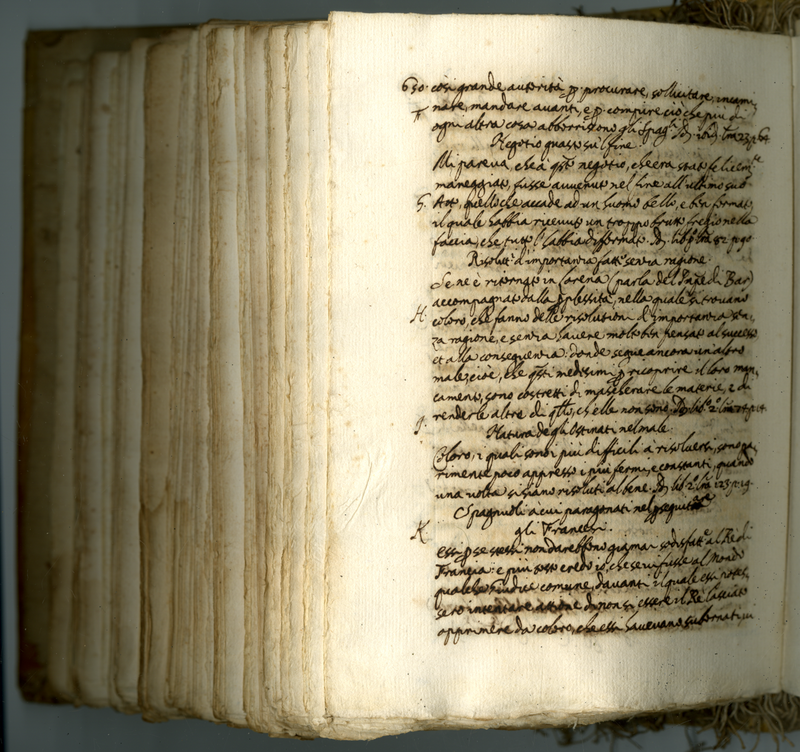 650. così grande autorità p procurare, sollicitare, incami
nare, mandare avanti, e p compire ciò che più di
ogni altra cosa abborriscono gli Spag.li
Negotio guasto sul fine.
Mi pareva, che à qsto negotio, che era stato felicem.te
maneggiato, fusse avvenuto nel fine all'ultimo sub
G. quello che accade ad un huomo bello, e ben formato,
il quale habbia ricevuto un troppo brutto fregio nella
faccia, che tutto l'habbia difformato. lib. 82 p. 90
Resolut.i d'importanza fatt.e senza ragione.
Se ne è ritornato in Lorena (parla del di Bar)
accompagnato dalla pplessità, nella quale si trovano
H. coloro, che fanno delle risolutioni d'importanza sen
za ragione, e senza havere molto ben pensato al successo
et alla consequenza: donde segue ancora un altro
male, cioè, che qsti medesimi p ricoprire il loro man
camento, sono costretti di mascherare le materie, e di
renderle altre di qllo, ch'elle non sono.
J. Natura degli Ostinati nel male.
Coloro, i quali sono i più difficili à risolversi, sono pa
rimente poco appresso i più fermi, e constanti, quando
una volta si siano risoluti al bene. lib. 2. 123 p. 19
Spagnuoli a cui paragonati nel pseguitare
K gli Francesi.
Essi p se stessi non darebbono giamai sodisfatt.e al Rè di
Francia: e più tosto credo io, che se vi fusse al Mondo
qualche Giudice comune, davanti il quale essi potes
sero intentare attione di non si essere il Rè lasciato
opprimere da coloro, che essi havevano subornati in